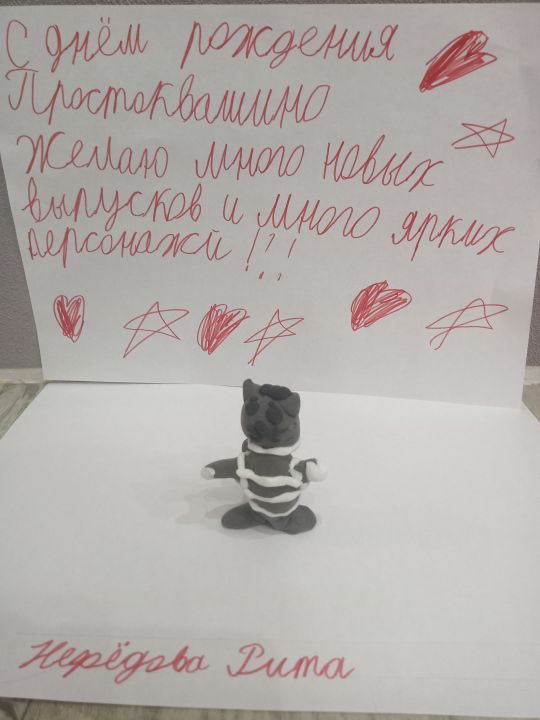 С днём рождения
Простоквашино
Желаю много новых
выпусков и много ярких
персонажй !!!
Рита